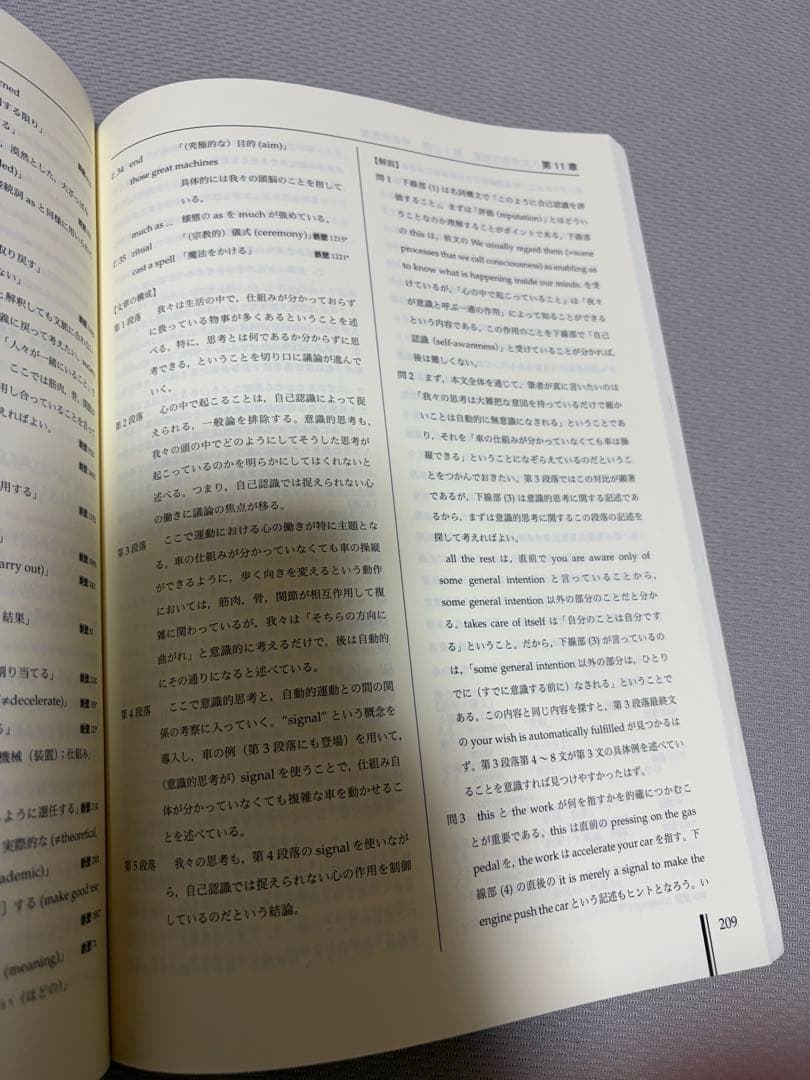 rned
する限り」
る」
，漠然とした，大ざっぱな
ded)」
続詞 as と同様に用いられて
取り戻す」
ない」
に解釈しても文脈に合わない
義に戻って考えたい。
「人々が一緒にいること」
ここでは筋肉，骨，関節が
用し合っていることを言って
えればよい。
用する」
arry out)」
結果」
割り当てる」
(≠decelerate)」
機械（装置）；仕組み」
ように選任する」
実際的な (≠theoretical,
ademic)」
］する (make good use
(meaning)」
い（ほどの)」
第 11 章
l.34 end 「（究極的な）目的 (aim)」
those great machines
具体的には我々の頭脳のことを指して
いる。
much as ... 様態の as を much が強めている。
l.35 ritual 「（宗教的）儀式 (ceremony)」鉄壁 1215*
cast a spell 「魔法をかける」 鉄壁 1221*
【文章の構成】
第1段落 我々は生活の中で，仕組みが分かっておらず
に扱っている物事が多くあるということを述
べる。特に，思考とは何であるか分からずに思
考できる，ということを切り口に議論が進んで
いく。
第2段落 心の中で起こることは，自己認識によって捉
えられる，一般論を排除する。意識的思考も，
我々の頭の中でどのようにしてそうした思考が
起こっているのかを明らかにしてはくれないと
述べる。つまり，自己認識では捉えられない心
の働きに議論の焦点が移る。
第3段落 ここで運動における心の働きが特に主題とな
る。車の仕組みが分かっていなくても車の操縦
ができるように，歩く向きを変えるという動作
においては，筋肉，骨，関節が相互作用して複
雑に関わっているが，我々は「そちらの方向に
曲がれ」と意識的に考えるだけで，後は自動的
にその通りになると述べている。
第4段落 ここで意識的思考と，自動的運動との間の関
係の考察に入っていく。“signal” という概念を
導入し，車の例（第３段落にも登場）を用いて，
（意識的思考が）signal を使うことで，仕組み自
体が分かっていなくても複雑な車を動かせるこ
とを述べている。
第5段落 我々の思考も，第４段落の signal を使いなが
ら，自己認識では捉えられない心の作用を制御
しているのだという結論。
【解説】
問1 下線部 (1) は名詞構文で「このように自己認識を評
価すること」。まずは「評価 (reputation)」とはどうい
うことなのか理解することがポイントである。下線部
の this は，前文の We usually regard them (=some
processes that we call consciousness) as enabling us
to know what is happening inside our minds. を受
けているが，「心の中で起こっていること」は「我々
が意識と呼ぶ一連の作用」によって知ることができる
という内容である。この作用のことを下線部で「自己
認識 (self-awareness)」と受けていることが分かれば，
後は難しくない。
問2 まず，本文全体を通じて，筆者が真に言いたいのは
「我々の思考は大雑把な意図を持っているだけで細か
いことは自動的に無意識になされる」ということであ
り，それを「車の仕組みが分かっていなくても車は操
縦できる」ということになぞらえているのだというこ
とをつかんでおきたい。第３段落ではこの対比が顕著
であるが，下線部 (3) は意識的思考に関する記述であ
るから，まずは意識的思考に関するこの段落の記述を
探して考えればよい。
all the rest は，直前で you are aware only of
some general intention と言っていることから，
some general intention 以外の部分のことだと分か
る。takes care of itself は「自分のことは自分です
る」ということ。だから，下線部 (3) が言っているの
は，「some general intention 以外の部分は，ひとり
でに（すでに意識する前に）なされる」ということで
ある。この内容と同じ内容を探すと，第３段落最終文
の your wish is automatically fulfilled が見つかるは
ず。第３段落第４～８文が第３文の具体例を述べてい
ることを意識すれば見つけやすかったはず。
問3 this と the work が何を指すかを的確につかむこ
とが重要である。this は直前の pressing on the gas
pedal を, the work は accelerate your car を指す。下
線部 (4) の直後の it is merely a signal to make the
engine push the car という記述もヒントとなろう。い
209